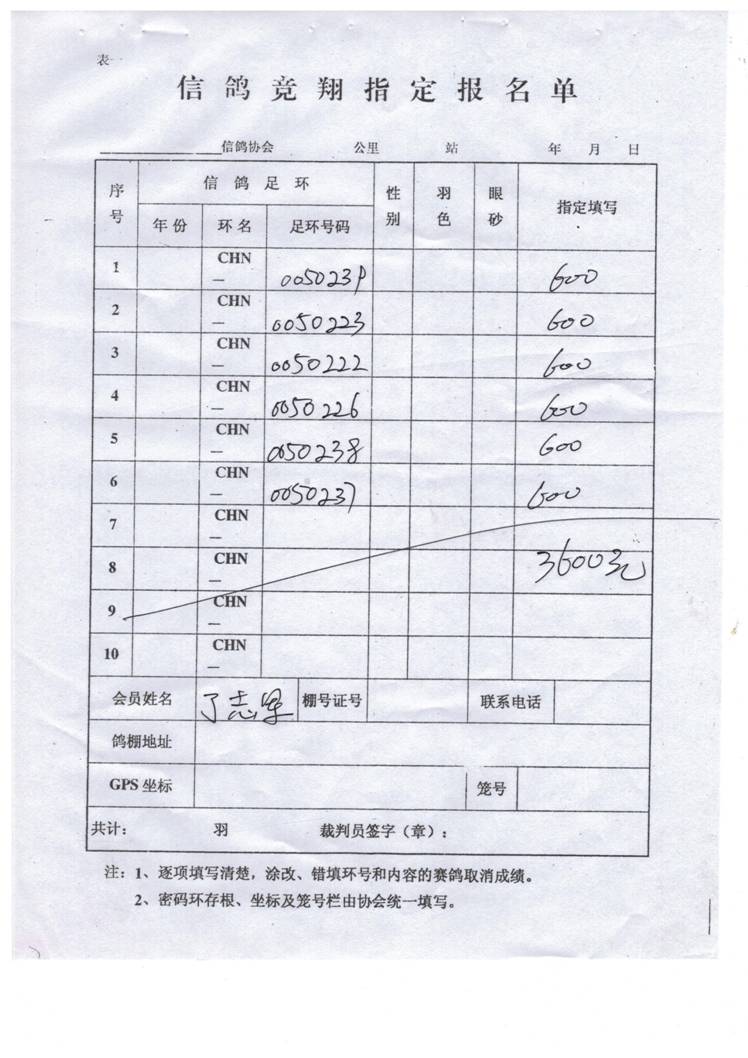 表一
信鸽竞翔指定报名单
信鸽协会 公里 站 年 月 日
序号 信鸽足环 性别 羽色 眼砂 指定填写
年份 环名 足环号码
1 CHN — 0050239 600
2 CHN — 0050223 600
3 CHN — 0050222 600
4 CHN — 0050226 600
5 CHN — 0050238 600
6 CHN — 0050237 600
7 CHN —
8 CHN — 3600元
9 CHN —
10 CHN —
会员姓名 丁志 棚号证号 联系电话
鸽棚地址
GPS 坐标 笼号
共计： 羽 裁判员签字（章）；
注：1、逐项填写清楚，涂改、错填环号和内容的赛鸽取消成绩。
2、密码环存根、坐标及笼号栏由协会统一填写。